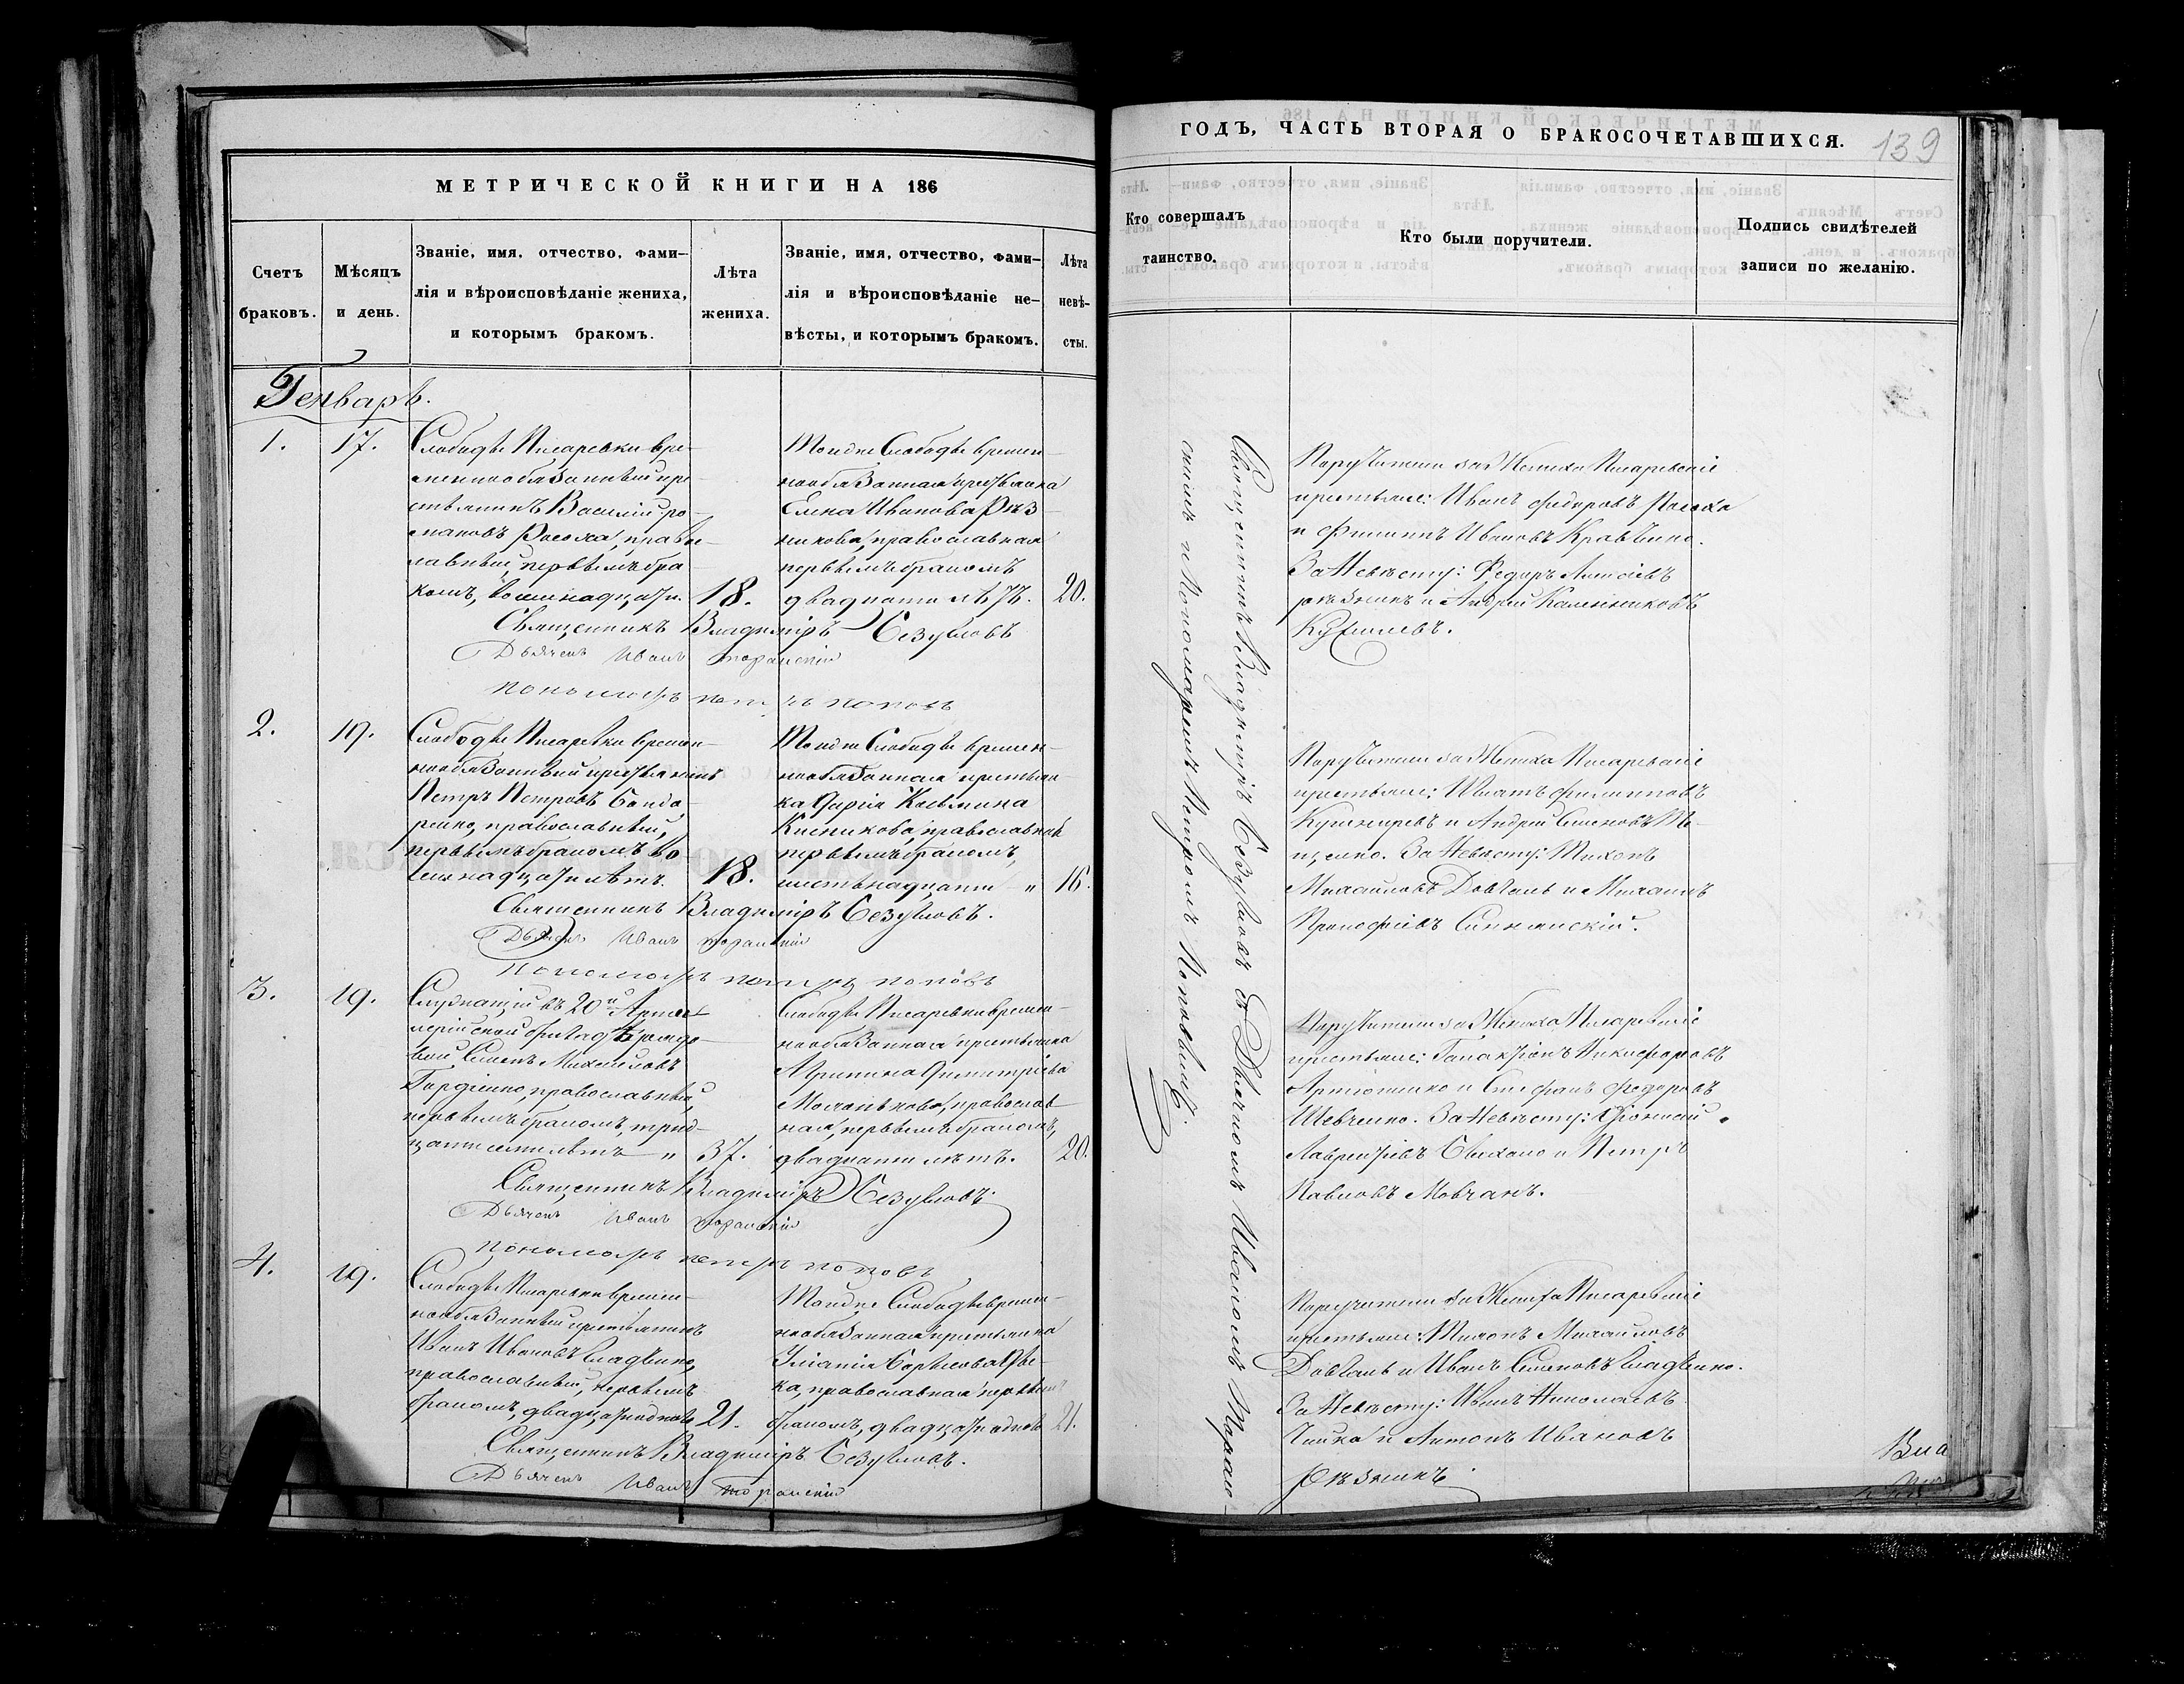 МЕТРИЧЕСКОЙ КНИГИ НА 186
Счетъ
браковъ.
Мѣсяцъ
и день.
Званіе, имя, отчество, фами-
лія и вѣроисповѣданіе жениха,
и которымъ бракомъ.
Лѣта
жениха.
Званіе, имя, отчество, фами-
лія и вѣроисповѣданіе не-
вѣсты, и которымъ бракомъ.
Лѣта
невѣ-
сты.
Генварь.
1.
17.
Слободы Писаревки вре-
меннообязанный кре-
стьянинъ Василій Ро-
мановъ Росоха, правос-
лавный, первымъ бра-
комъ, восемнадцати.
18.
Тойже Слободы времен-
нообязанная крестьянка
Елена Иванова Рѣз-
никова, православная
первымъ бракомъ
двадцати лѣтъ.
20.
Священникъ Владиміръ Безугловъ
Дьячекъ Иванъ
Пономарь Петръ Поповъ
2.
19.
Слободы Писаревки времен-
нообязанный крестьянинъ
Петръ Петровъ Бонда-
ренко, православный,
первымъ бракомъ во-
семнадцати лѣтъ.
18.
Тойже Слободы времен-
нообязанная крестьян-
ка Дарія Косьмина
православная
первымъ бракомъ,
шестьнадцати "
16.
Священникъ Владиміръ Безугловъ.
Дьячекъ Иванъ
Пономарь Петръ Поповъ
3.
19.
Служащій въ 20й Артил-
лерійской бригадѣ рядо-
вой Семенъ Михайловъ
Гордіенко, православный,
первымъ бракомъ, трид-
цати семи лѣтъ "
37.
Слободы Писаревки времен-
нообязанная крестьянка
Димитріева
православ-
ная, первымъ бракомъ,
двадцати лѣтъ.
20.
Священникъ Владиміръ Безугловъ.
Дьячекъ Иванъ
Пономарь Петръ Поповъ
4.
19.
Слободы Писаревки времен-
нообязанный крестьянинъ
Иванъ Ивановъ Гладченко,
православный, первымъ
бракомъ, двадцати одного
21.
Тойже Слободы времен-
нообязанная крестьянка
Уліанія Борисова
ка, православная первымъ
бракомъ, двадцати одного
21.
Священникъ Владиміръ Безугловъ.
Дьячекъ Иванъ
ГОДЪ, ЧАСТЬ ВТОРАЯ О БРАКОСОЧЕТАВШИХСЯ.
139
Кто совершалъ
таинство.
Кто были поручители.
Подпись свидѣтелей
записи по желанію.
Священникъ Владиміръ Безугловъ съ Дьячкомъ Иваномъ
и Пономаремъ Петромъ Поповымъ.
Поручители за Жениха Писаревскіе
крестьяне: Иванъ Федоровъ Росоха
и Филиппъ Ивановъ Кравченко.
За Невѣсту: Федоръ Алексѣевъ
Рѣзникъ и Андрей
Поручители за Жениха Писаревскіе
крестьяне: Филипповъ
Кушниревъ и Андрей Семеновъ
За Невѣсту: Тихонъ
Михайловъ Довгаль и Михаилъ
Прокофіевъ
Поручители за Жениха Писаревскіе
крестьяне: Галактіонъ Никифоровъ
Артюшенко и Стефанъ Федоровъ
Шевченко. За Невѣсту:
Лаврентіевъ и Петръ
Павловъ Мовчанъ.
Поручители за Жениха Писаревскіе
крестьяне: Тихонъ Михайловъ
Довгаль и Иванъ Семеновъ Гладченко.
За Невѣсту: Иванъ Николаевъ
Чайка и Антонъ Ивановъ
Рѣзникъ.